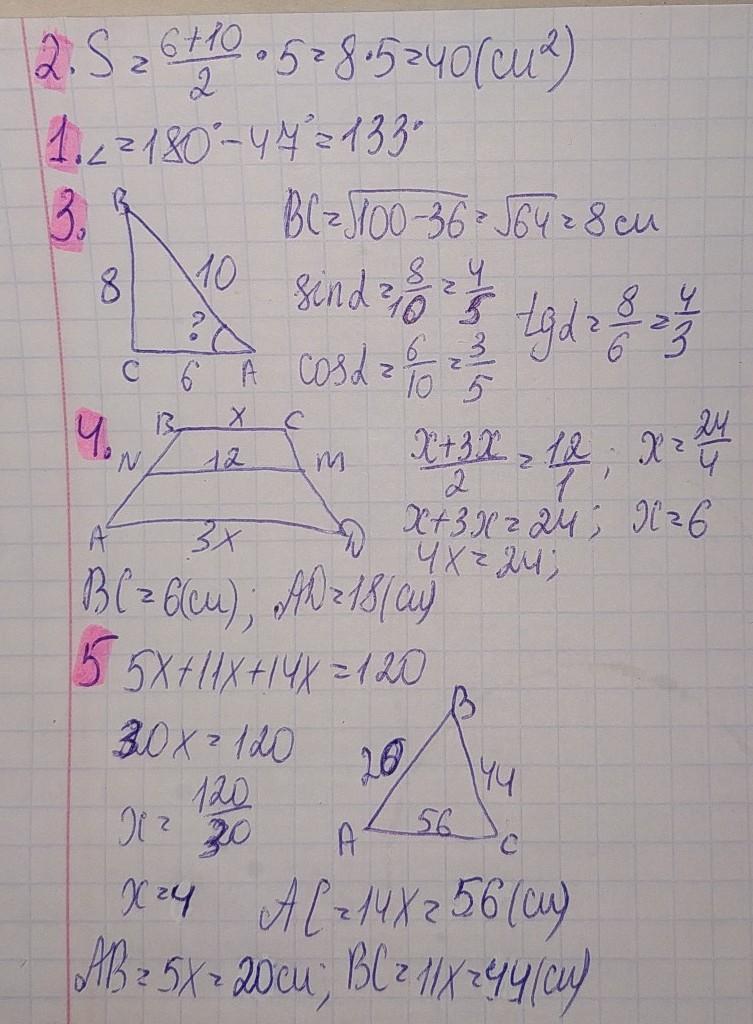 2. S = (6+10)/2 · 5 = 8·5 = 40 (см²)
1. ∠ = 180° - 47° = 133°
3. BC = √(100-36) = √64 = 8 см
B
8 10
?
C 6 A
sin α = 8/10 = 4/5
tg α = 8/6 = 4/3
cos α = 6/10 = 3/5
4.
B x C
N 12 M
A 3x D
(x+3x)/2 = 12/1; x = 24/4
x+3x = 24; x = 6
4x = 24;
BC = 6 (см); AD = 18 (см)
5 5x+11x+14x = 120
30x = 120
x = 120/30
B
20 44
A 56 C
x = 4 AC = 14x = 56 (см)
AB = 5x = 20 см; BC = 11x = 44 (см)